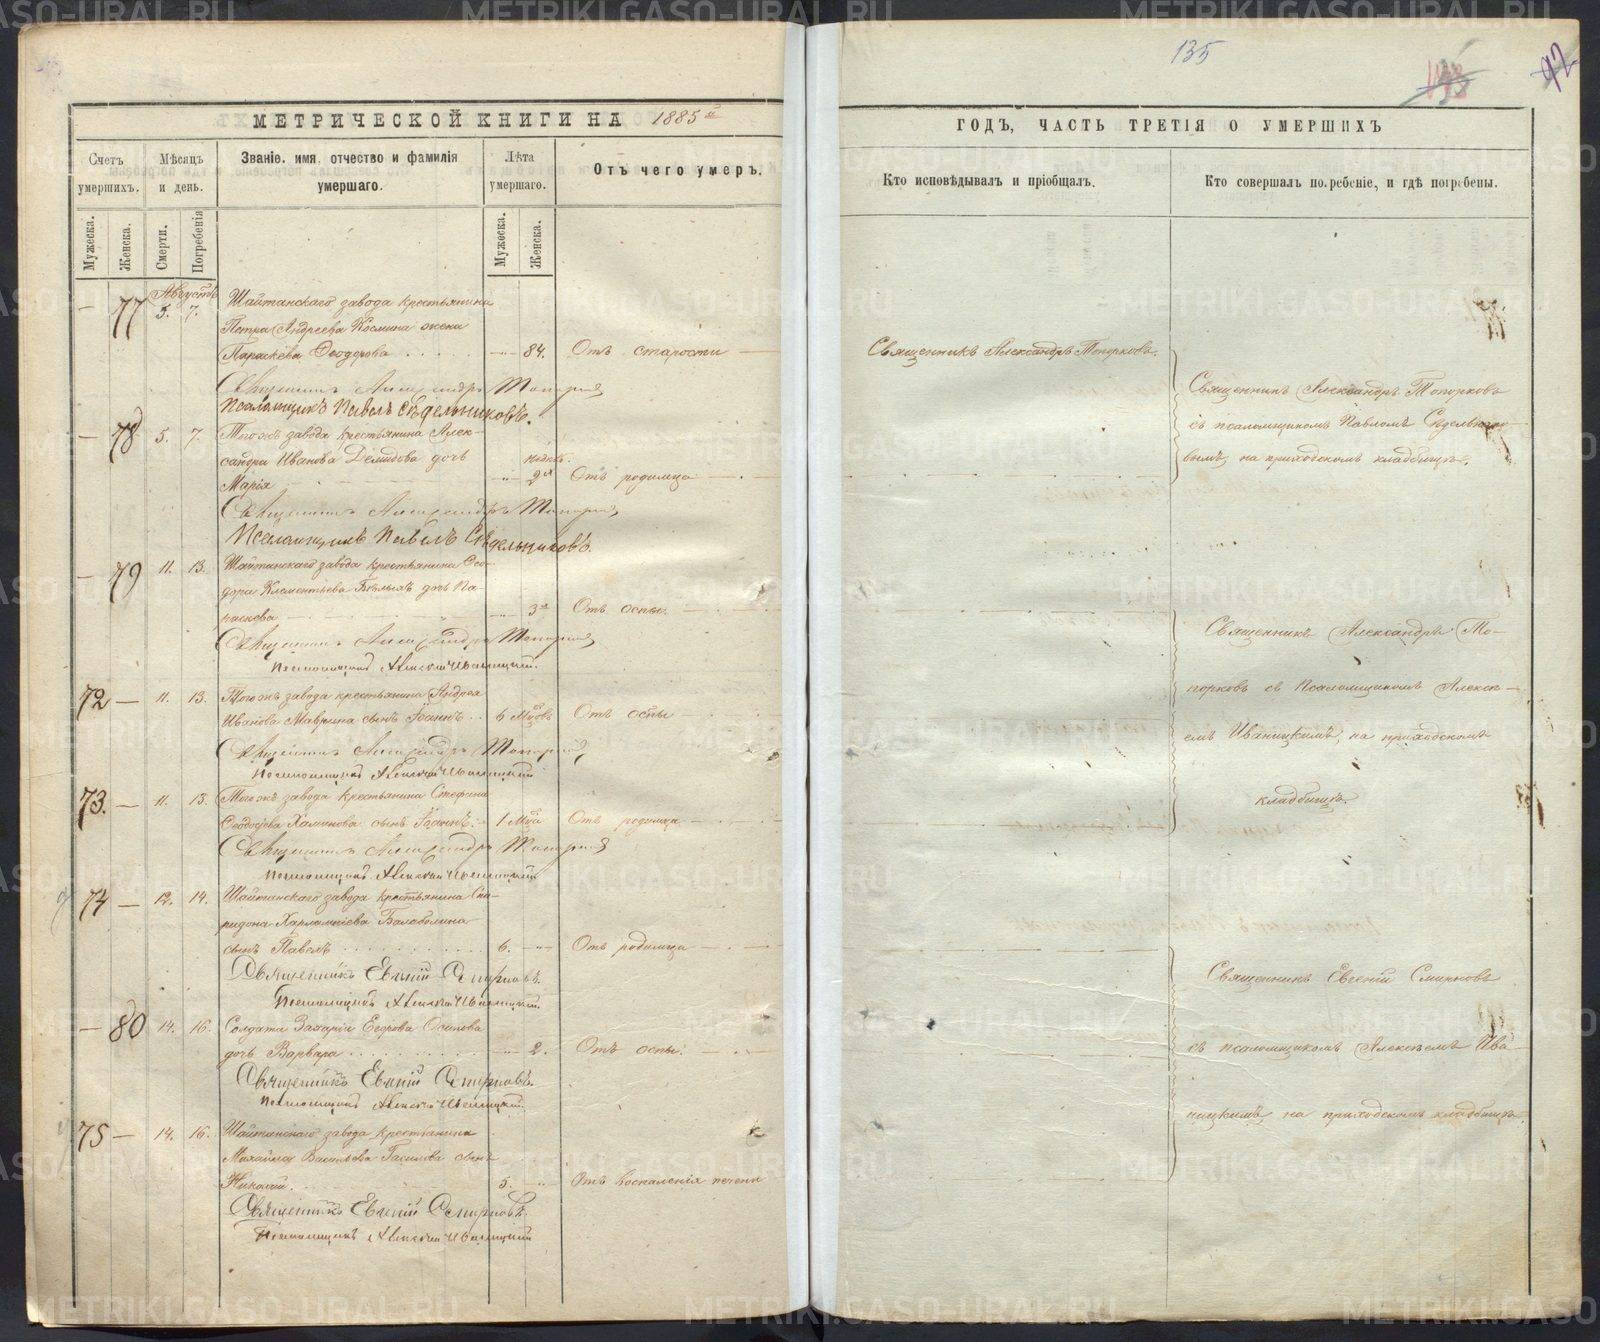 135
92
МЕТРИЧЕСКОЙ КНИГИ НА 1885й
ГОДЪ, ЧАСТЬ ТРЕТІЯ О УМЕРШИХЪ
Счетъ умершихъ.
Мѣсяцъ и день.
Званіе. имя, отчество и фамилія умершаго.
Лѣта умершаго.
Отъ чего умеръ.
Кто исповѣдывалъ и пріобщалъ.
Кто совершалъ погребеніе, и гдѣ погребены.
Мужеска.
Женска.
Смерти.
Погребенія
Мужеска.
Женска.
Августъ
— 77 5. 7. Шайтанскаго завода крестьянина
Петра Андреева Космина жена
Параскева Ѳеодорова . . . . — 84. Отъ старости — Священникъ Александръ Топорковъ.
Священникъ Александръ Топорковъ
Псаломщикъ Павелъ Сѣдельниковъ.
Священникъ Александръ Топорковъ
съ псаломщикомъ Павломъ Сѣдельнико-
вымъ, на приходскомъ кладбищѣ.
— 78 5. 7. Того жъ завода крестьянина Алек-
сандра Иванова Демидова дочь
Марія — недѣль. 2хъ Отъ родимца —
Священникъ Александръ Топорковъ
Псаломщикъ Павелъ Сѣдельниковъ.
— 79 11. 13. Шайтанскаго завода крестьянина Ѳео-
дора Клементьева Бѣлыхъ дочь Па-
раскева — 3хъ Отъ оспы. —
Священникъ Александръ Топорковъ
Псаломщикъ Алексѣй Иваницкій.
Священникъ Александръ То-
порковъ съ Псаломщикомъ Алексѣ-
емъ Иваницкимъ, на приходскомъ
кладбищѣ.
72 — 11. 13. Того жъ завода крестьянина Андрея
Иванова Маврина сынъ Іоаннъ . . 6 Мцовъ Отъ оспы
Священникъ Александръ Топорковъ
Псаломщикъ Алексѣй Иваницкій
73. — 11. 13. Того жъ завода крестьянина Стефана
Ѳеодосѣева Халимова сынъ Іоаннъ. — 1 Мца Отъ родимца —
Священникъ Александръ Топорковъ
Псаломщикъ Алексѣй Иваницкій
74 — 12. 14. Шайтанскаго завода крестьянина Спи-
ридона Харлампіева Балаболина
сынъ Павелъ . . . . 6. — Отъ родимца —
Священникъ Евгеній Смирновъ.
Псаломщикъ Алексѣй Иваницкій.
Священникъ Евгеній Смирновъ
съ псаломщикомъ Алексѣемъ Ива-
ницкимъ, на приходскомъ кладбищѣ.
— 80 14. 16. Солдата Захарія Егорова Осипова
дочь Варвара . . . . — 2. Отъ оспы. —
Священникъ Евгеній Смирновъ.
Псаломщикъ Алексѣй Иваницкій.
75 — 14. 16. Шайтанскаго завода крестьянина
Михаила Васильева Гасилова сынъ
Николай. 5. — Отъ воспаленія печени
Священникъ Евгеній Смирновъ.
Псаломщикъ Алексѣй Иваницкій
METRIKI.GASO-URAL.RU